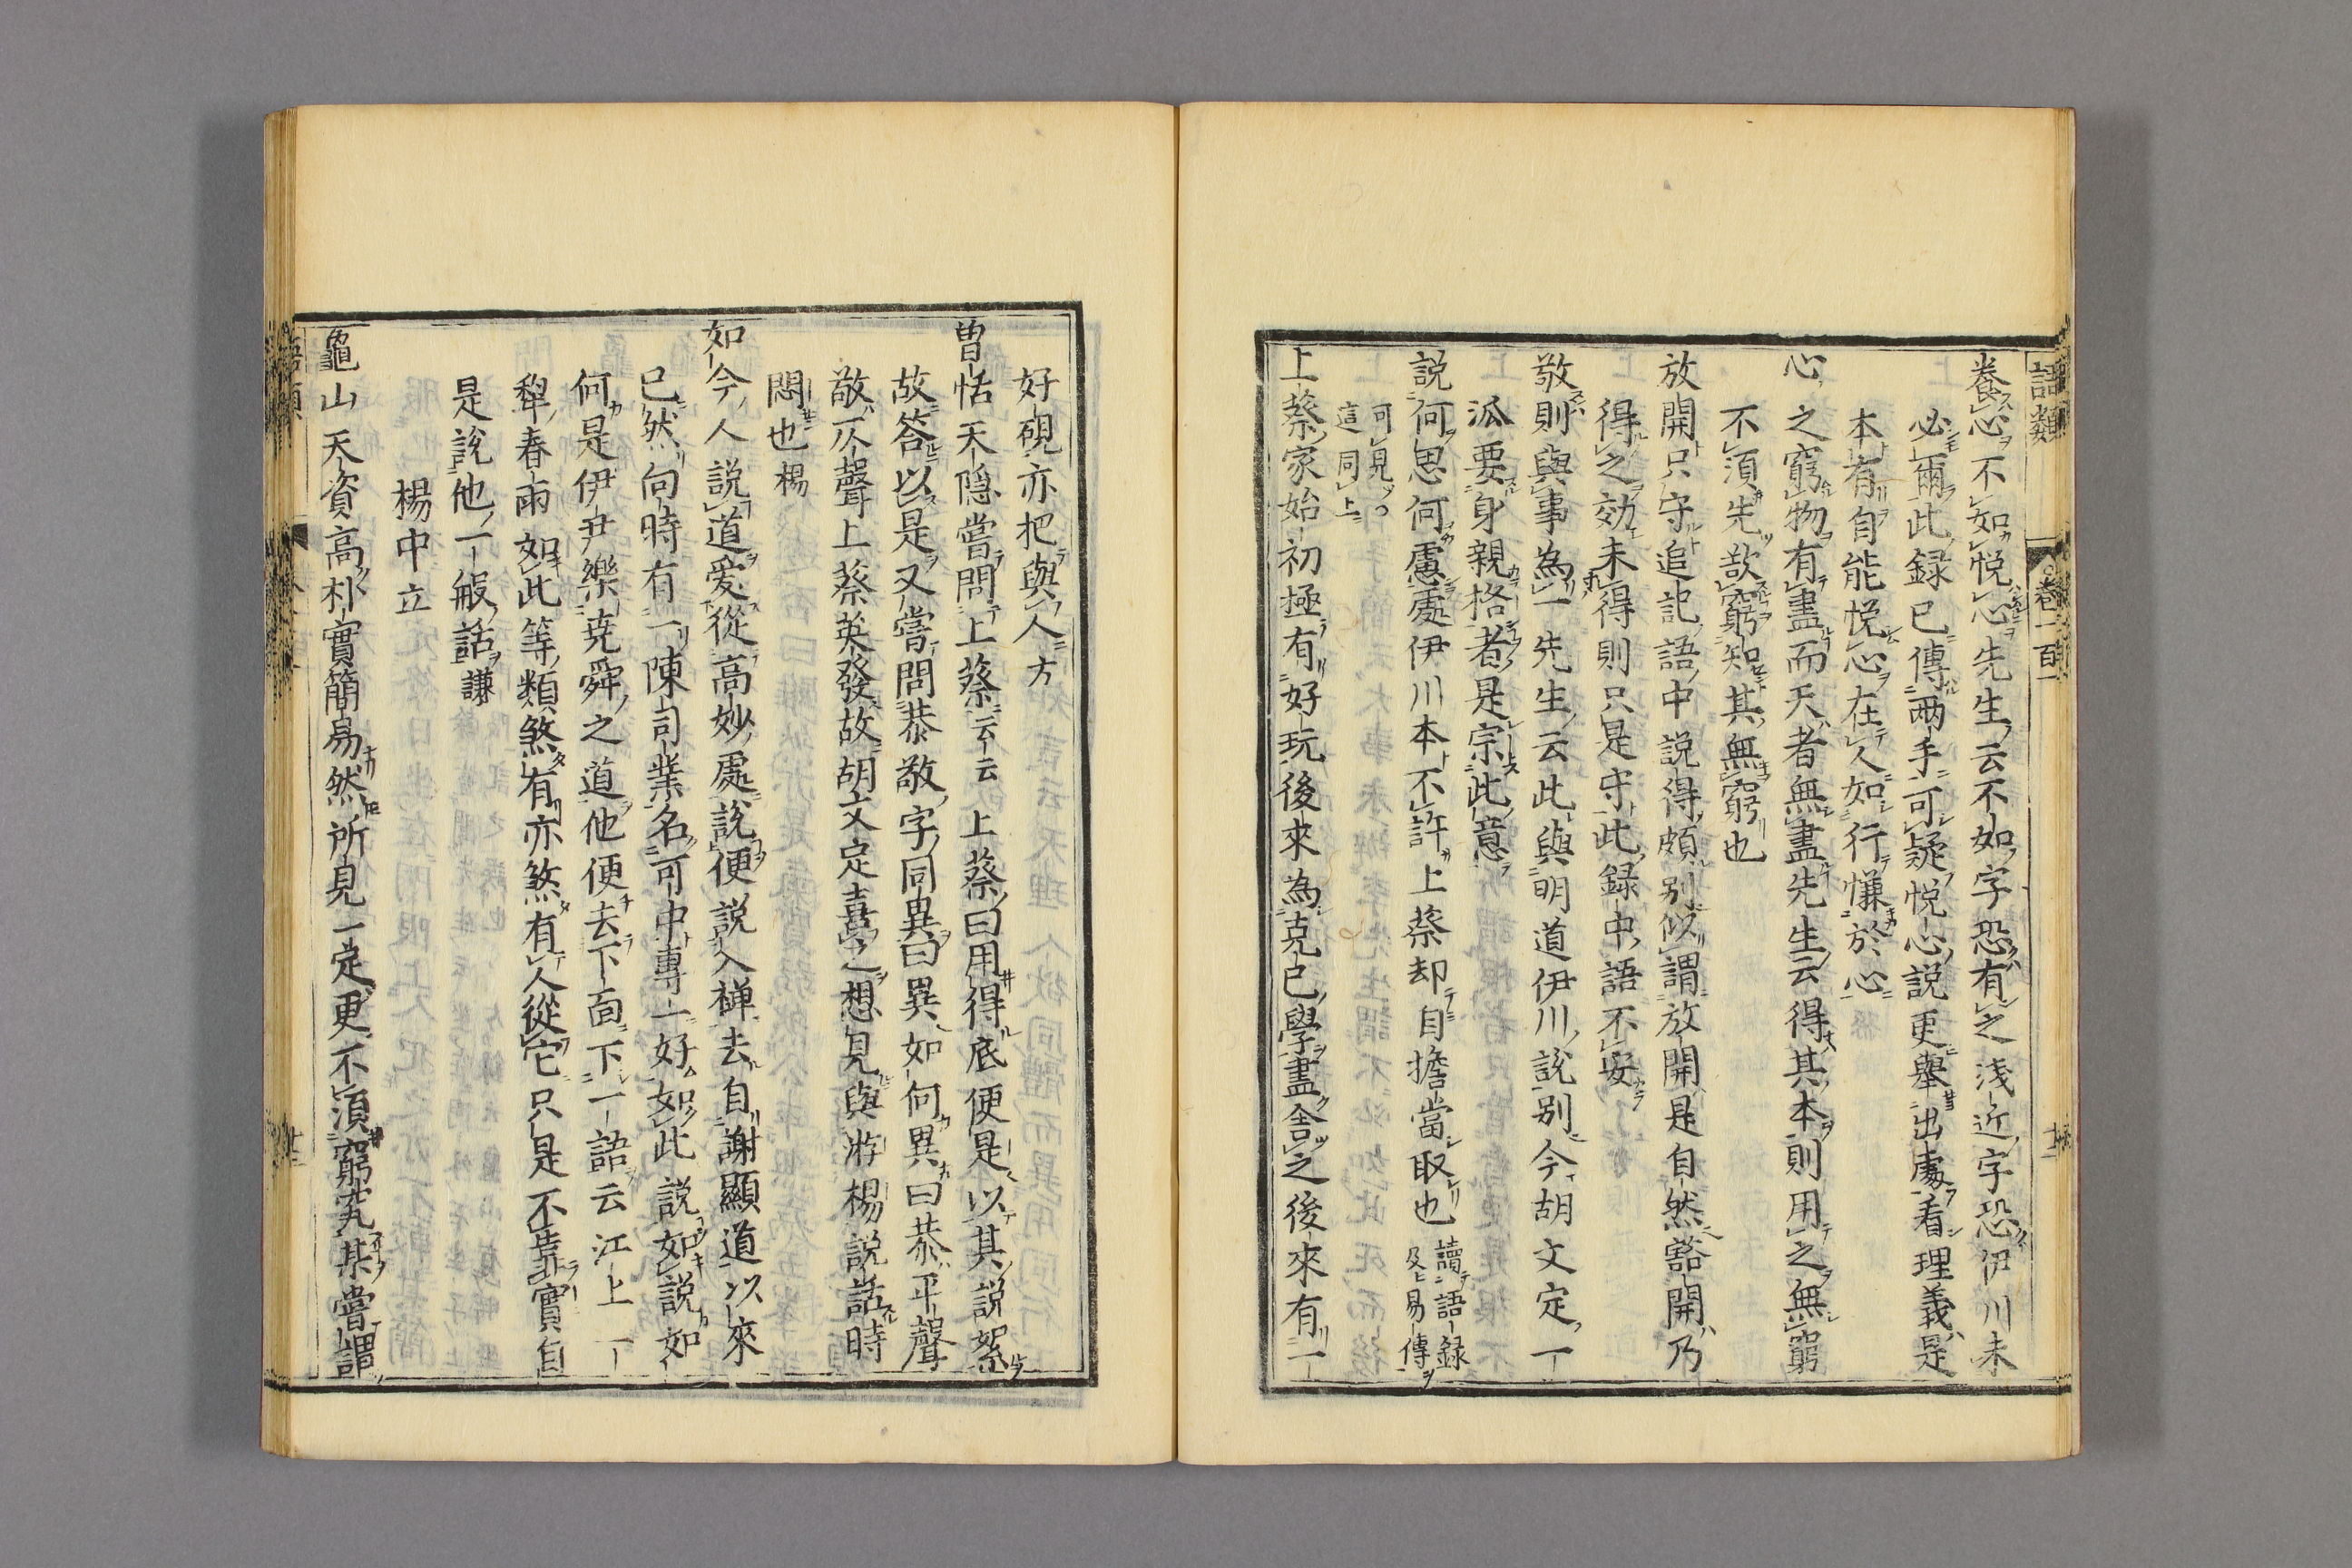 語類 卷一百一 十二
養心不如悅心先生云不如字恐有之淺近字恐伊川未
必爾此録已傳兩手可疑悅心說更舉出處看理義是
本有自能悅心在人如行慊於心
心之窮物有盡而天者無盡先生云得其本則用之無窮
不須先欲窮知其無窮也
放開只守追記語中説得頗別似謂放開是自然豁開乃
得之効未得則只是守此録中語不安
敬則與事為一先生云此與明道伊川説别今胡文定一
派要身親格者是宗此意
説何思何慮處伊川本不許上蔡却自擔當取也讀語録及易傳
可見。這同上
上蔡家始初極有好玩後來為克已學盡舎之後來有一
好硯亦把與人方
曽恬天隱嘗問上蔡云云上蔡曰用得底便是以其説絮
故答以是又嘗問恭敬字同異曰異如何異曰恭平聲
敬仄聲上蔡英發故胡文定喜之想見與游楊説話時
悶也楊
如今人説道愛從高妙處説便説入禅去自謝顯道以來
已然向時有一陳司業名可中專一好如此説如説如
何是伊尹樂堯舜之道他便去下面下一語云江上一
犂春雨如此等類煞有亦煞有人從它只是不靠實自
是説他一般話謙
楊中立
龜山天資高朴實簡易然所見一定更不須窮究某嘗謂
語類